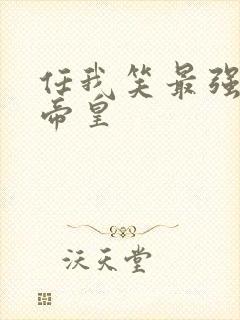 任我笑最强
帝皇
沃天堂